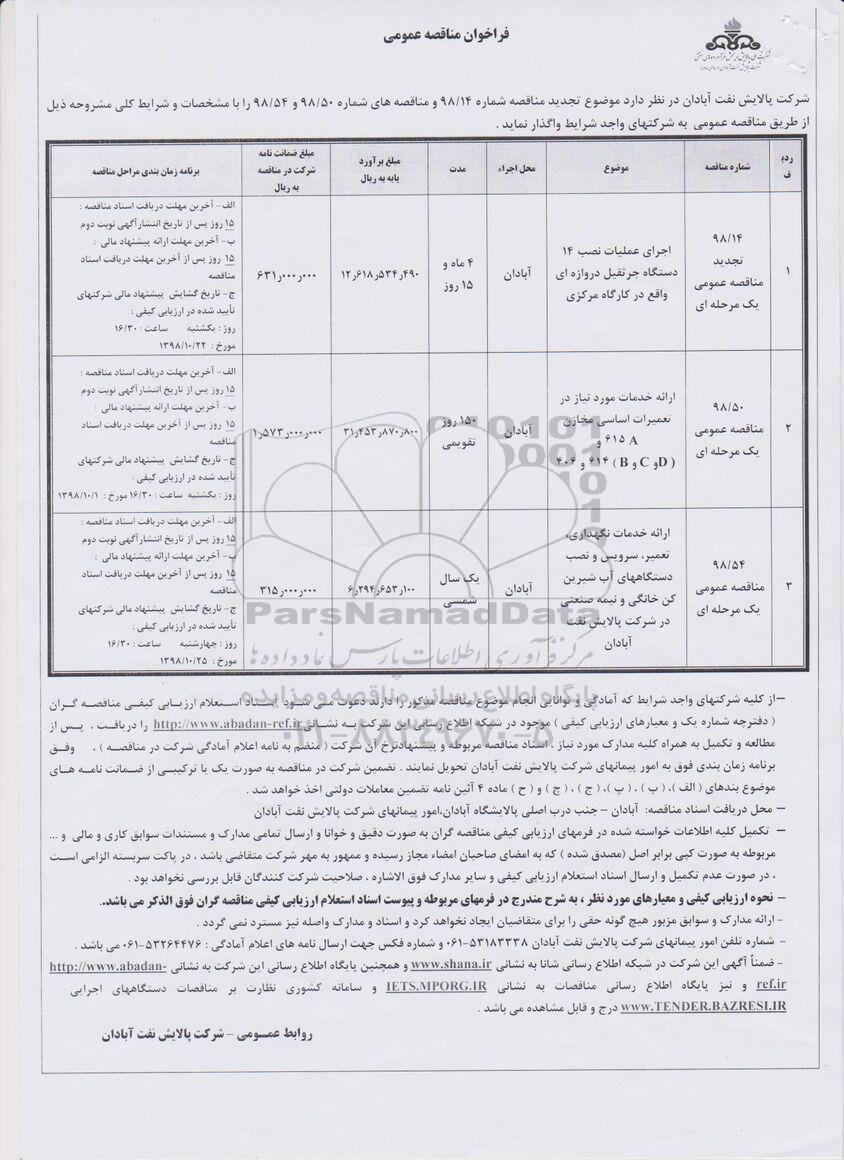 فراخوان مناقصه عمومی
شرکت پالایش نفت آبادان در نظر دارد موضوع تجدید مناقصه شماره ۹۸/۱۴ و مناقصه های شماره ۹۸/۵۰ و ۹۸/۵۴ را با مشخصات و شرایط کلی مشروحه ذیل
از طریق مناقصه عمومی به شرکتهای واجد شرایط واگذار نماید .
ردیف شماره مناقصه موضوع محل اجراء مدت مبلغ برآورد پایه به ریال مبلغ ضمانت نامه شرکت در مناقصه به ریال برنامه زمان بندی مراحل مناقصه
۱
۹۸/۱۴
تجدید
مناقصه عمومی
یک مرحله ای
اجرای عملیات نصب ۱۴
دستگاه جرثقیل دروازه ای
واقع در کارگاه مرکزی
آبادان
۴ ماه و
۱۵ روز
۱۲٫۶۱۸٫۵۳۴٫۴۹۰
۶۳۱٫۰۰۰٫۰۰۰
الف- آخرین مهلت دریافت اسناد مناقصه :
۱۵ روز پس از تاریخ انتشارآگهی نوبت دوم
ب- آخرین مهلت ارائه پیشنهاد مالی :
۱۵ روز پس از آخرین مهلت دریافت اسناد
مناقصه
ج- تاریخ گشایش پیشنهاد مالی شرکتهای
تأیید شده در ارزیابی کیفی :
روز : یکشنبه ساعت : ۱۶/۳۰
مورخ : ۱۳۹۸/۱۰/۲۲
۲
۹۸/۵۰
مناقصه عمومی
یک مرحله ای
ارائه خدمات مورد نیاز در
تعمیرات اساسی مخازن
A ۶۱۵ و
( Dو C و B) ۶۱۴ و ۴۰۶
آبادان
۱۵۰ روز
تقویمی
۳۱٫۴۵۳٫۸۷۰٫۸۰۰
۱٫۵۷۳٫۰۰۰٫۰۰۰
الف- آخرین مهلت دریافت اسناد مناقصه :
۱۵ روز پس از تاریخ انتشارآگهی نوبت دوم
ب- آخرین مهلت ارائه پیشنهاد مالی :
۱۵ روز پس از آخرین مهلت دریافت اسناد
مناقصه
ج- تاریخ گشایش پیشنهاد مالی شرکتهای
تأیید شده در ارزیابی کیفی :
روز : یکشنبه ساعت : ۱۶/۳۰ مورخ : ۱۳۹۸/۱۰/۱
۳
۹۸/۵۴
مناقصه عمومی
یک مرحله ای
ارائه خدمات نگهداری،
تعمیر، سرویس و نصب
دستگاههای آب شیرین
کن خانگی و نیمه صنعتی
در شرکت پالایش نفت
آبادان
آبادان
یک سال
شمسی
۶٫۲۹۴٫۶۵۳٫۱۰۰
۳۱۵٫۰۰۰٫۰۰۰
الف- آخرین مهلت دریافت اسناد مناقصه :
۱۵ روز پس از تاریخ انتشارآگهی نوبت دوم
ب- آخرین مهلت ارائه پیشنهاد مالی :
۱۵ روز پس از آخرین مهلت دریافت اسناد
مناقصه
ج- تاریخ گشایش پیشنهاد مالی شرکتهای
تأیید شده در ارزیابی کیفی :
روز : چهارشنبه ساعت : ۱۶/۳۰
مورخ : ۱۳۹۸/۱۰/۲۵
ParsNamadData
مرکز فرآوری اطلاعات پارس نماد داده ها
پایگاه اطلاع رسانی مناقصه و مزایده
۰۲۱-۸۸۳۴۹۶۷۰-۵
– از کلیه شرکتهای واجد شرایط که آمادگی و توانایی انجام موضوع مناقصه مذکور را دارند دعوت می شود اسناد استعلام ارزیابی کیفی مناقصه گران
( دفترچه شماره یک و معیارهای ارزیابی کیفی ) موجود در شبکه اطلاع رسانی این شرکت به نشانی http://www.abadan-ref.ir را دریافت ، پس از
مطالعه و تکمیل به همراه کلیه مدارک مورد نیاز ، اسناد مناقصه مربوطه و پیشنهادنرخ آن شرکت ( منضم به نامه اعلام آمادگی شرکت در مناقصه ) ، وفق
برنامه زمان بندی فوق به امور پیمانهای شرکت پالایش نفت آبادان تحویل نمایند . تضمین شرکت در مناقصه به صورت یک یا ترکیبی از ضمانت نامه های
موضوع بندهای ( الف )، ( ب ) ، ( پ )، ( ج ) ، ( چ ) و ( ح ) ماده ۴ آئین نامه تضمین معاملات دولتی اخذ خواهد شد .
– محل دریافت اسناد مناقصه: آبادان – جنب درب اصلی پالایشگاه آبادان،امور پیمانهای شرکت پالایش نفت آبادان
– تکمیل کلیه اطلاعات خواسته شده در فرمهای ارزیابی کیفی مناقصه گران به صورت دقیق و خوانا و ارسال تمامی مدارک و مستندات سوابق کاری و مالی و ...
مربوطه به صورت کپی برابر اصل (مصدق شده ) که به امضای صاحبان امضاء مجاز رسیده و ممهور به مهر شرکت متقاضی باشد ، در پاکت سربسته الزامی است
، در صورت عدم تکمیل و ارسال اسناد استعلام ارزیابی کیفی و سایر مدارک فوق الاشاره ، صلاحیت شرکت کنندگان قابل بررسی نخواهد بود .
– نحوه ارزیابی کیفی و معیارهای مورد نظر ، به شرح مندرج در فرمهای مربوطه و پیوست اسناد استعلام ارزیابی کیفی مناقصه گران فوق الذکر می باشد.
- ارائه مدارک و سوابق مزبور هیچ گونه حقی را برای متقاضیان ایجاد نخواهد کرد و اسناد و مدارک واصله نیز مسترد نمی گردد .
- شماره تلفن امور پیمانهای شرکت پالایش نفت آبادان ۵۳۱۸۳۳۳۸-۰۶۱ و شماره فکس جهت ارسال نامه های اعلام آمادگی : ۵۳۲۶۴۴۷۶-۰۶۱ می باشد .
- ضمناً آگهی این شرکت در شبکه اطلاع رسانی شانا به نشانی www.shana.ir و همچنین پایگاه اطلاع رسانی این شرکت به نشانی http://www.abadan-
ref.ir و نیز پایگاه اطلاع رسانی مناقصات به نشانی IETS.MPORG.IR و سامانه کشوری نظارت بر مناقصات دستگاههای اجرایی
www.TENDER.BAZRESI.IR درج و قابل مشاهده می باشد .
روابط عمومی – شرکت پالایش نفت آبادان